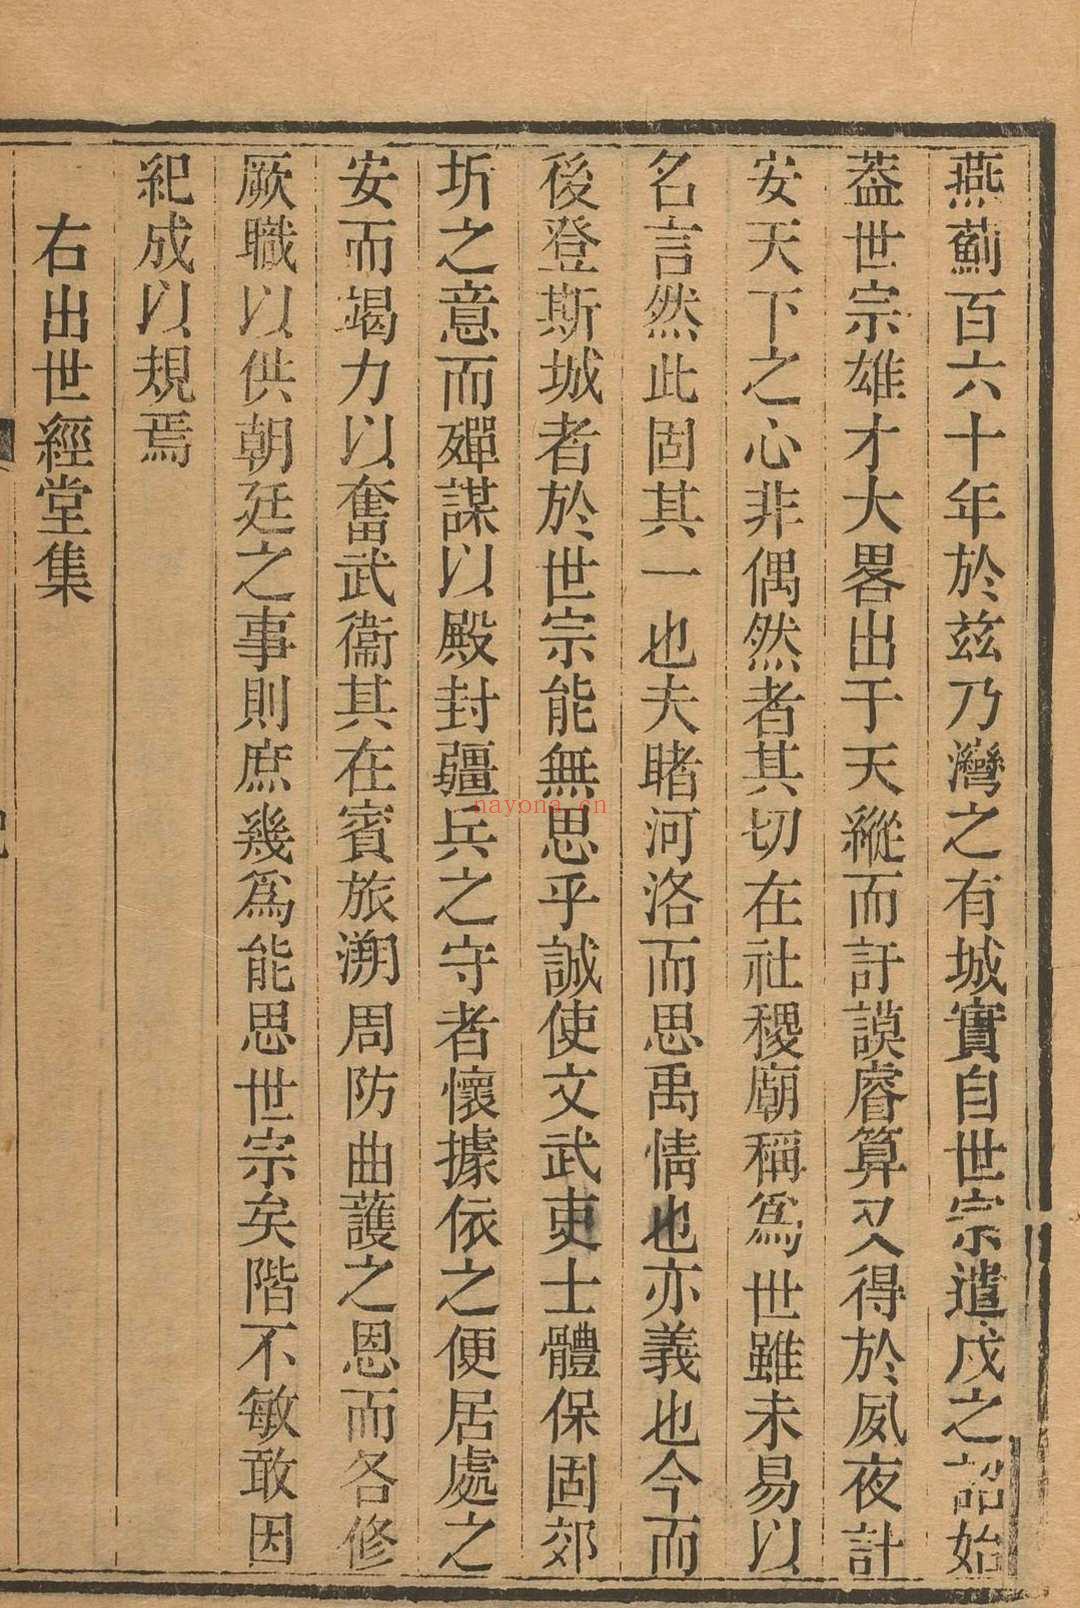 燕薊百六十年於茲乃灣之有城實自世宗遣戍之詔始
葢世宗雄才大畧出于天縱而訏謨睿算又得於夙夜計
安天下之心非偶然者其切在社稷廟稱爲世雖未易以
名言然此固其一也夫睹河洛而思禹情也亦義也今而
後登斯城者於世宗能無思乎誠使文武吏士體保固郊
圻之意而殫謀以殿封疆兵之守者懷據依之便居處之
安而竭力以奮武衞其在賓旅溯周防曲護之恩而各修
厥職以供朝廷之事則庶幾爲能思世宗矣階不敏敢因
紀成以規焉
右出世經堂集
nayona.cn